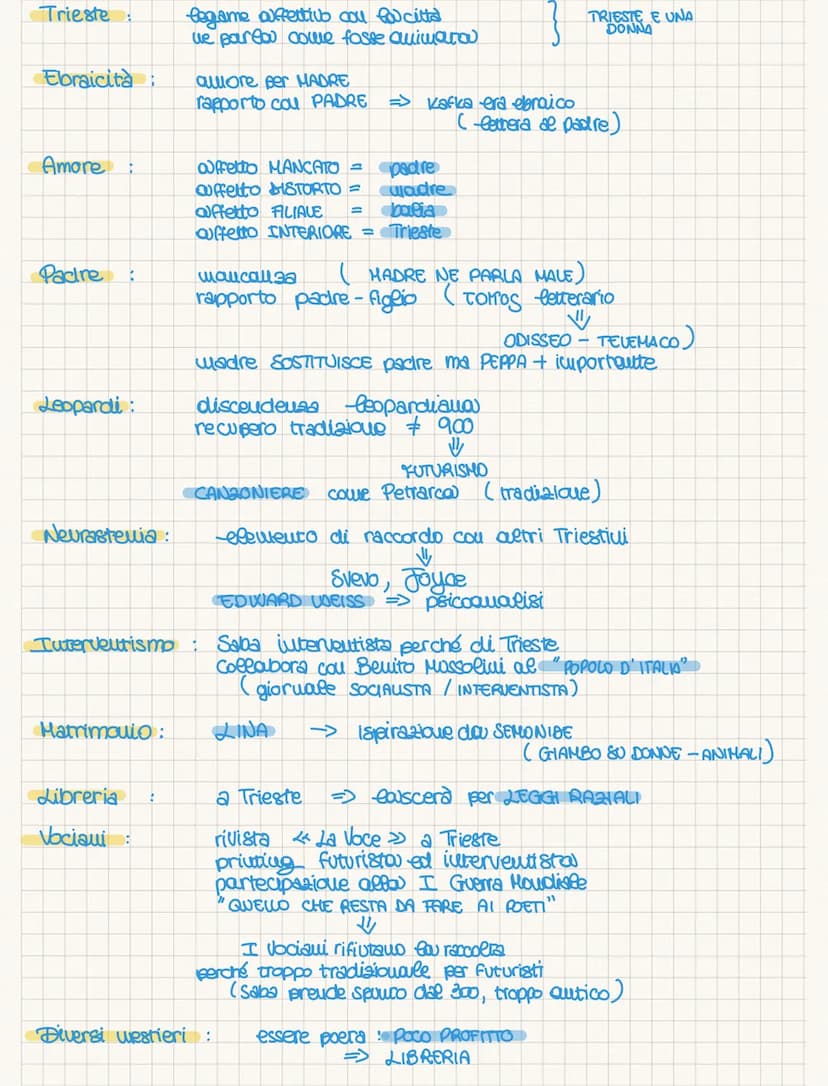 Trieste : legame affettivo con la città } TRIESTE E UNA
ne parla come fosse animata DONNA
Ebraicità : amore per MADRE
rapporto con PADRE => Kafka era ebraico
(lettera al padre)
Amore : affetto MANCATO = padre
affetto DISTORTO = madre
affetto FILIALE = balia
affetto INTERIORE = Trieste
Padre : mancanza ( MADRE NE PARLA MALE)
rapporto padre-figlio ( TOPOS letterario
⇓
ODISSEO - TELEMACO)
madre SOSTITUISCE padre ma PEPPA + importante
Leopardi : discendenza leopardiana
recupero tradizione ≠ 900
⇓
FUTURISMO
CANZONIERE come Petrarca (tradizione)
Neurastenia : elemento di raccordo con altri Triestini
⇓
Svevo, Joyce
EDWARD WEISS => psicoanalisi
Interventismo : Saba interventista perché di Trieste
Collabora con Benito Mussolini al "POPOLO D'ITALIA"
(giornale SOCIALISTA / INTERVENTISTA)
Matrimonio : LINA -> Ispirazione da SEMONIDE
(GIAMBO SU DONNE-ANIMALI)
Libreria : a Trieste => lascerà per LEGGI RAZIALI
Vociani : rivista « La Voce » a Trieste
printing futurista ed interventista
partecipazione alla I Guerra Mondiale
"QUELLO CHE RESTA DA FARE AI POETI"
⇓
I Vociani rifiutano la raccolta
perché troppo tradizionale per futuristi
(Saba prende spunto dal 300, troppo antico)
Diversi mestieri : essere poera : POCO PROFITTO
=> LIBRERIA